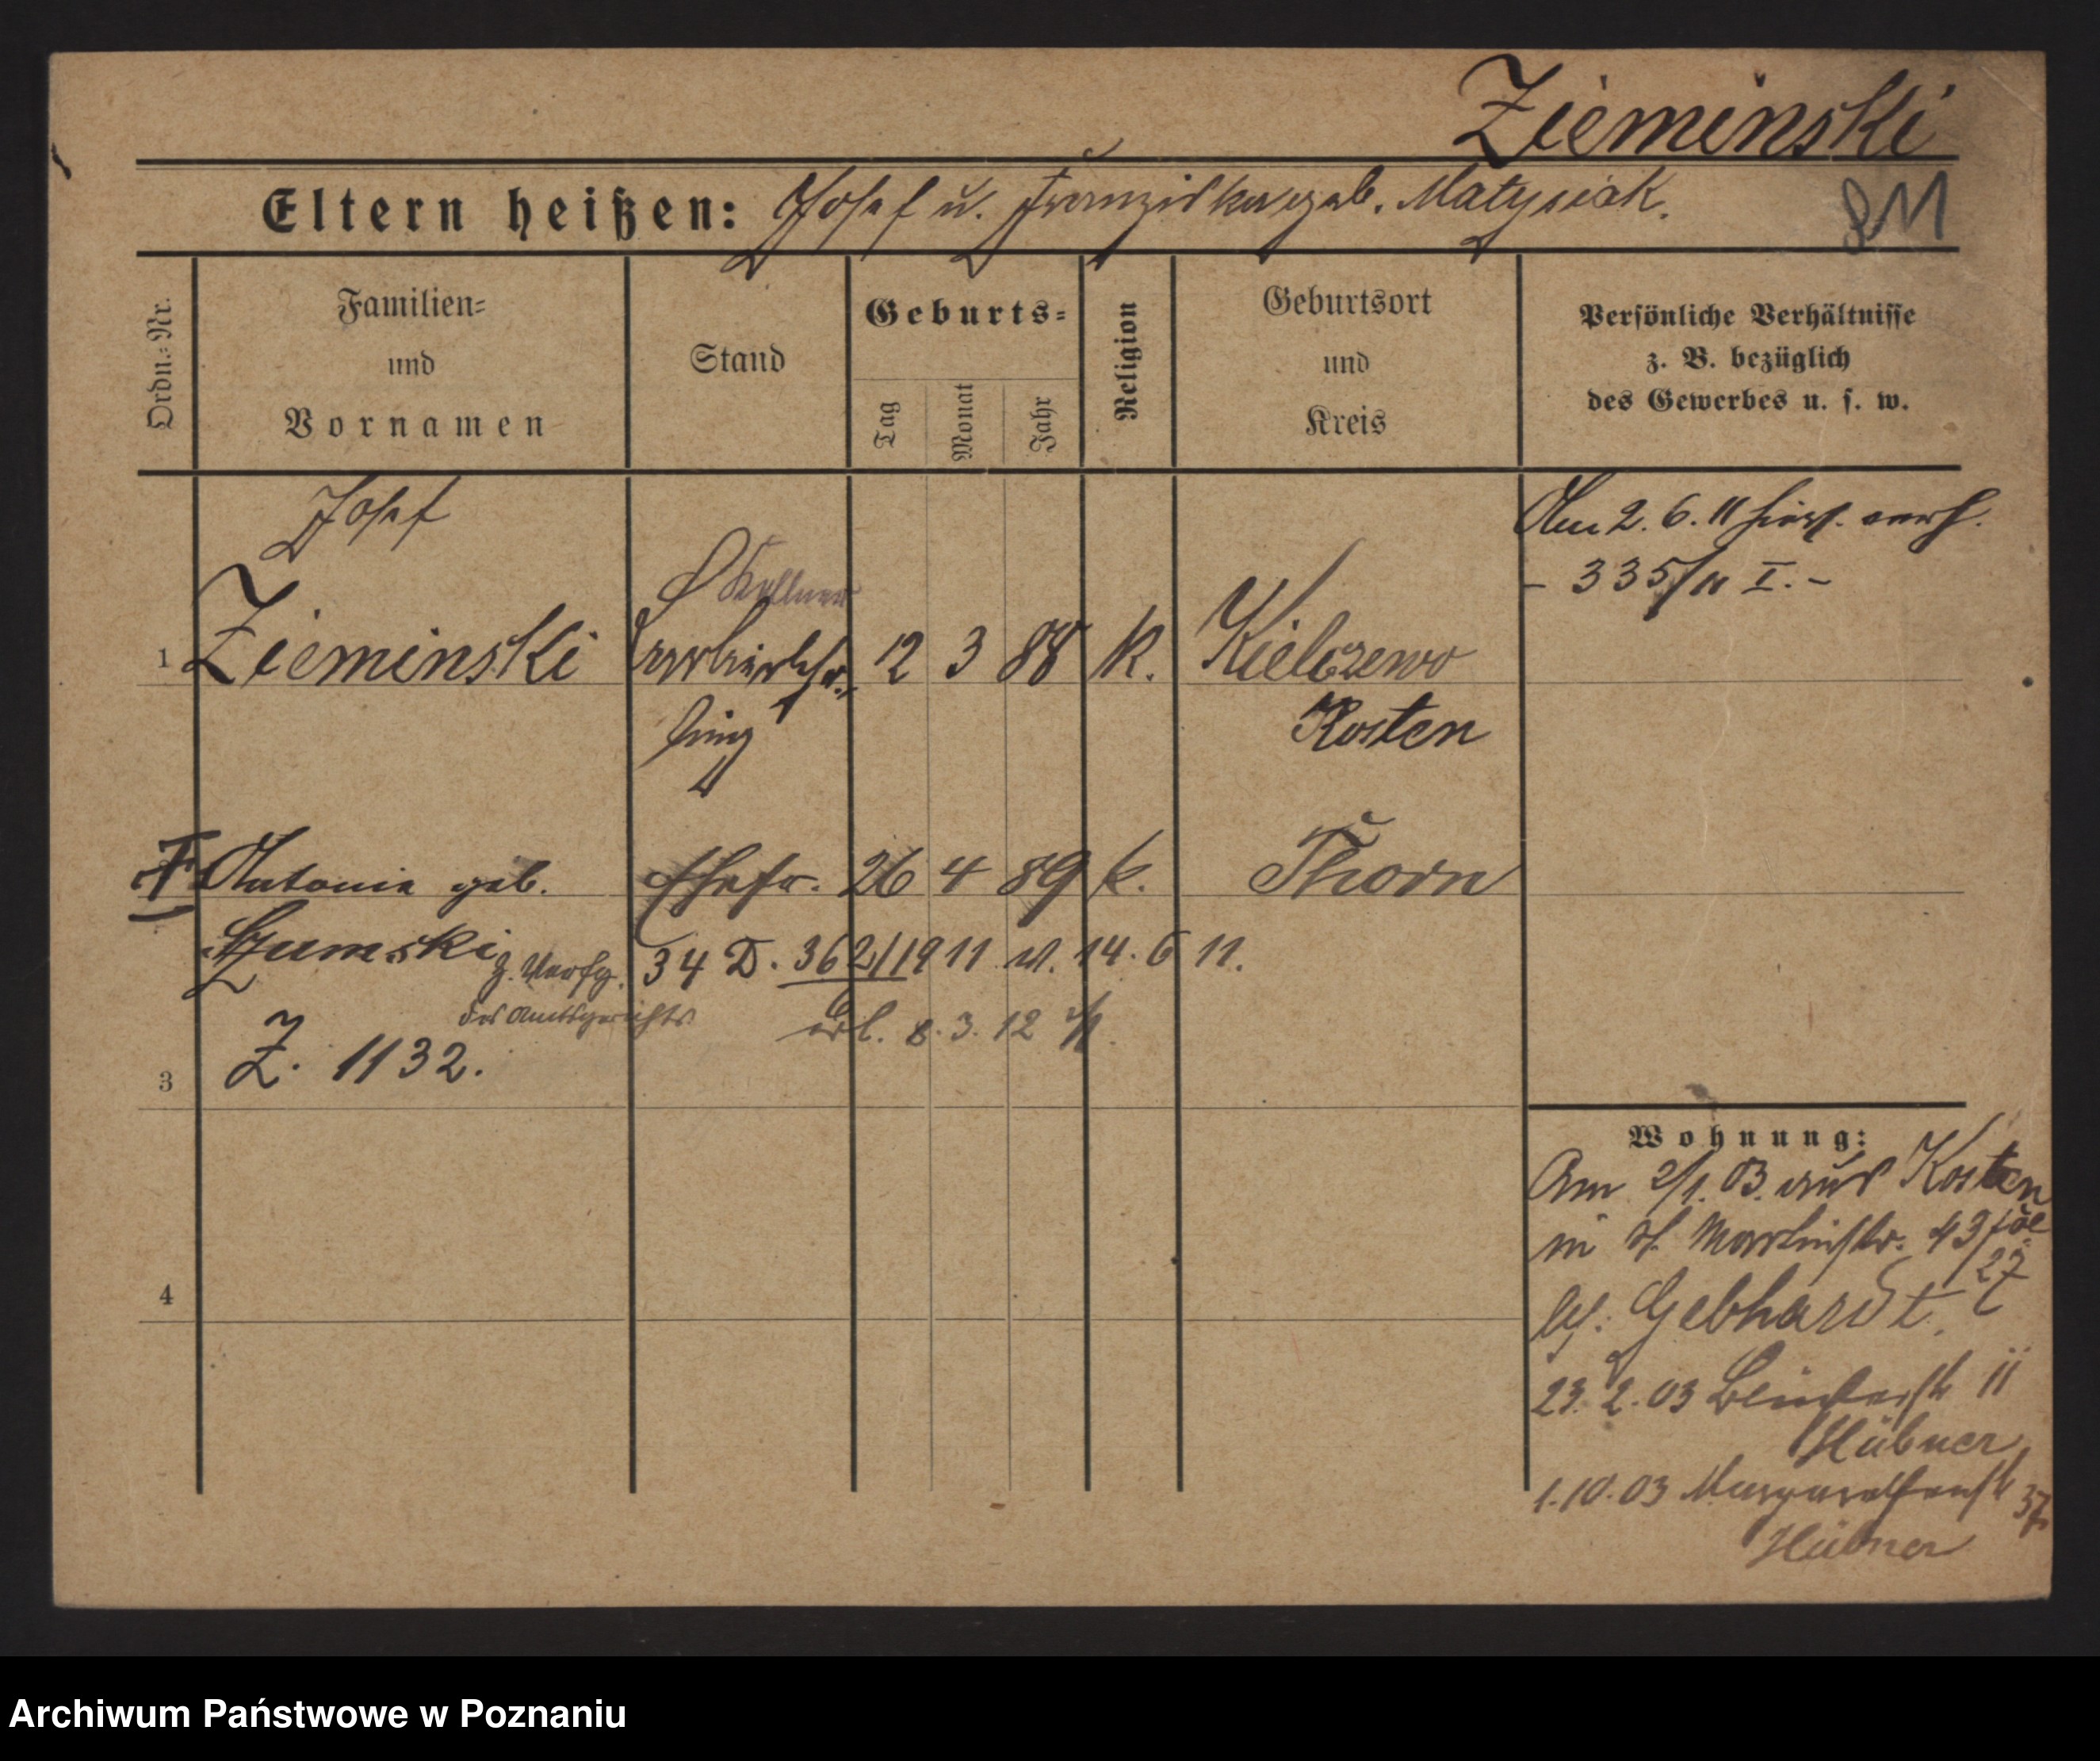 Zieminski
Eltern heißen: Josef u. Franziska geb. Matysiak.
Ordn.-Nr.
Familien-
und
Vornamen
Stand
Geburts-
Tag
Monat
Jahr
Religion
Geburtsort
und
Kreis
Persönliche Verhältnisse
z. B. bezüglich
des Gewerbes u. s. w.
Josef
Kellner
1 Zieminski Barbierlehr- 12 3 88 K. Kielczewo
ling Kosten
Am 2. 6. 11 hier verh.
- 335/11 I. -
Antonie geb. Ehefr. 26 4 89 k. Thorn
Szumski g. Verfg. 34 D. 362/1911 v. 14. 6 11.
des Amtsgerichts erl. 8. 3. 12
3 Z. 1132.
4
Wohnung:
Am 2/1. 03. aus Kosten
in St. Martinstr. 43
bei Gebhardt. 27
23. 2. 03 11
Hübner
1. 10. 03 Margarethenstr 37
Hübner
Archiwum Państwowe w Poznaniu